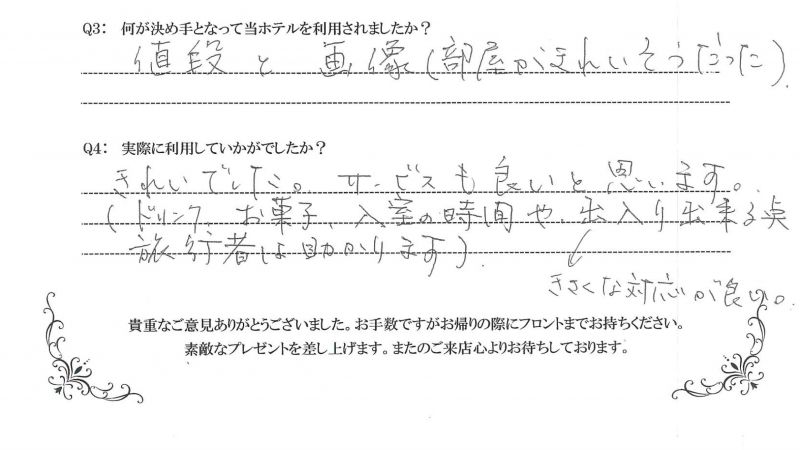 Q3: 何が決め手となって当ホテルを利用されましたか?
値段と画像(部屋がきれいそうだった)
Q4: 実際に利用していかがでしたか?
きれいでした。サービスも良いと思います。
(ドリンク、お菓子、入室の時間や、出入り出来る点
旅行者は助かります)
きさくな対応が良い。
貴重なご意見ありがとうございました。お手数ですがお帰りの際にフロントまでお持ちください。
素敵なプレゼントを差し上げます。またのご来店心よりお待ちしております。